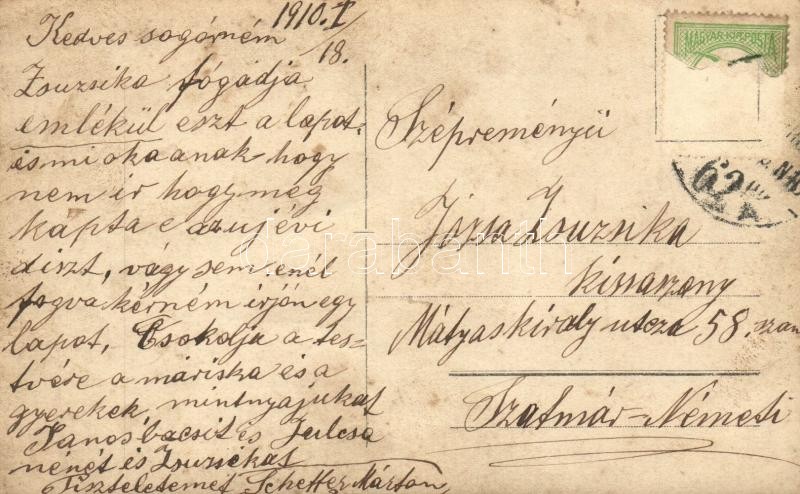 1910. I/18.
Kedves sogórném
Zsuzsika fógadja
emlékül eszt a lapot.
és mi oka anak hogy
nem ir hogy meg
kapta e azujévi
diszt, vagy sem. enél
fogva kérném irjón egy
lapot, Csokolja a tes-
tvére a máriska és a
gyerekek, mintnyájukat
Janos bácsit és Julcsa
nénét és Zsuzsékat
Tiszteletemet Scheffer Márton,
MAGYAR KIR. POSTA
Szépreményü
Józsa Zsuzsika
kissaszony
Mátyaskirály utcza 58. szam
Szatmár-Németi
darabanth